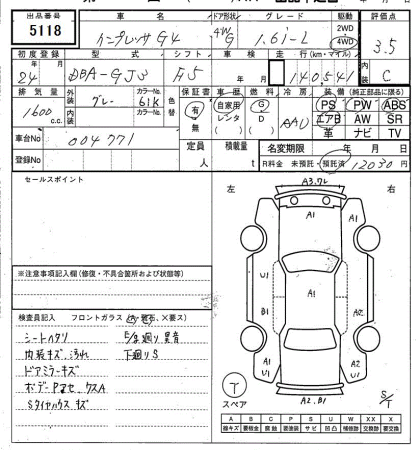 出品番号 車名 ドア形状 グレード 駆動 評価点
5118 インプレッサG4 4W G 1.6i-L 2WD 4WD 3.5
初度登録 型式 シフト 車検 走行(km・マイル) 内装
24年 月 DBA-GJ3 F5 年 月 140541 C
排気量 外装 カラーNo. 色替 保証書 車歴 燃料 冷房 装備(純正部品に限る)
1600 c.c. グレー 61K 有 自家用 G AAC PS PW ABS
内装 カラーNo. 無 レンタ D エアB AW SR
( ) ( ) 革 ナビ TV
車台No 004771 定員 積載量 名変期限 年 月 日
登録No 人 t R料金 未預託・預託済 12030 円
セールスポイント
左 右
A3.7L
A1
A1
U1 A2
A1
B1 A1
A1 A2
U1
A2.B1
※注意事項記入欄(修復・不具合箇所および状態等)
検査員記入 フロントガラス(A、飛石、×要ス)
シートヘタリ E/g廻り異音
内装キズ、汚れ 下廻りS
ドアミラーキズ
ボデーPヌセ、クスA
Sタイヤハウスキズ
T
スペア
S/T
A B C P S U W X XX
線キズ 要板金 腐蝕 要塗装 サビ 凹凸 補修跡 要交換 交換済